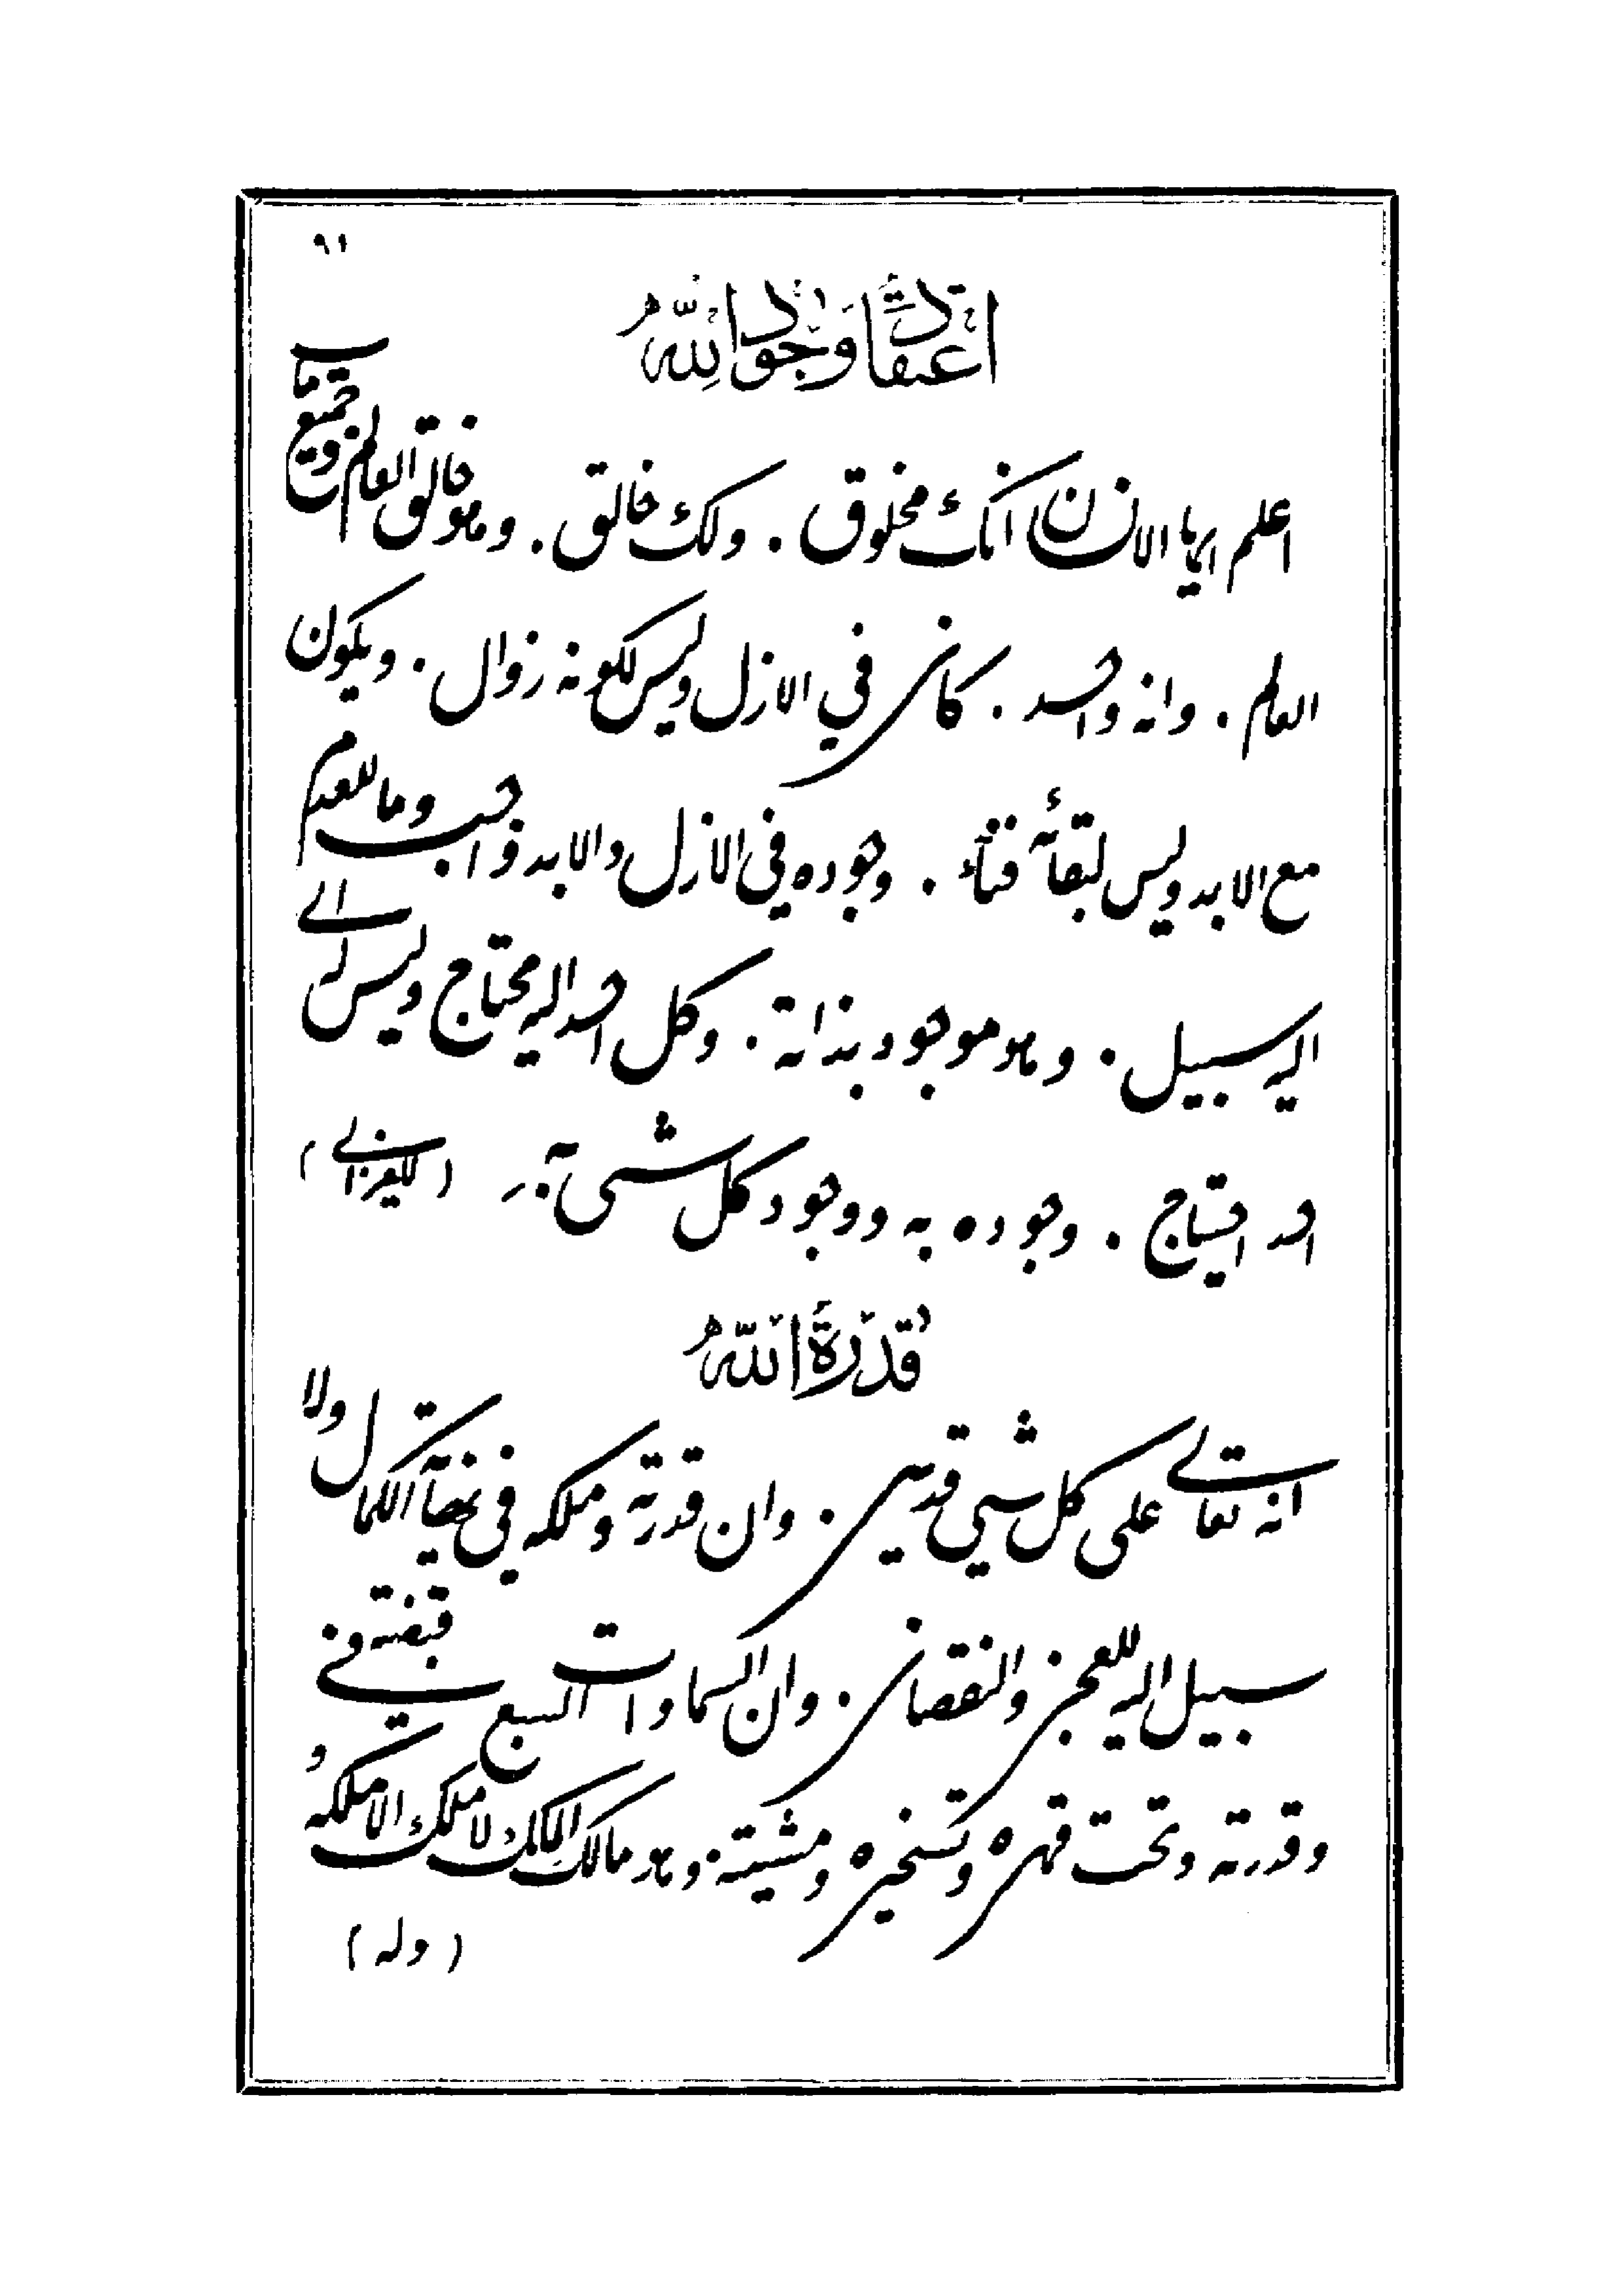 ٩١
اعتقاد وجود الله
اعلم ايها الانسان انك مخلوق . ولك خالق . وهو خالق العالم وجميع ما في
العالم . وانه واحد . كان في الازل وليس لكونه زوال . ويكون
مع الابد وليس لبقائه فناء . وجوده في الازل والابد واجب وما للعدم
اليه سبيل . وهو موجود بذاته . وكل احد اليه محتاج وليس له الى
احد احتياج . وجوده به ووجود كل شيء به (للغزالي)
قُدْرَةُ اللهِ
انه تعالى على كل شيء قدير . وان قدرته وملكه في نهاية الكمال ولا
سبيل اليه للعجز والنقصان . وان السماوات السبع في قبضته
وقدرته وتحت قهره وتسخيره ومشيته . وهو مالك الملك لا ملك الا ملكه
(وله)